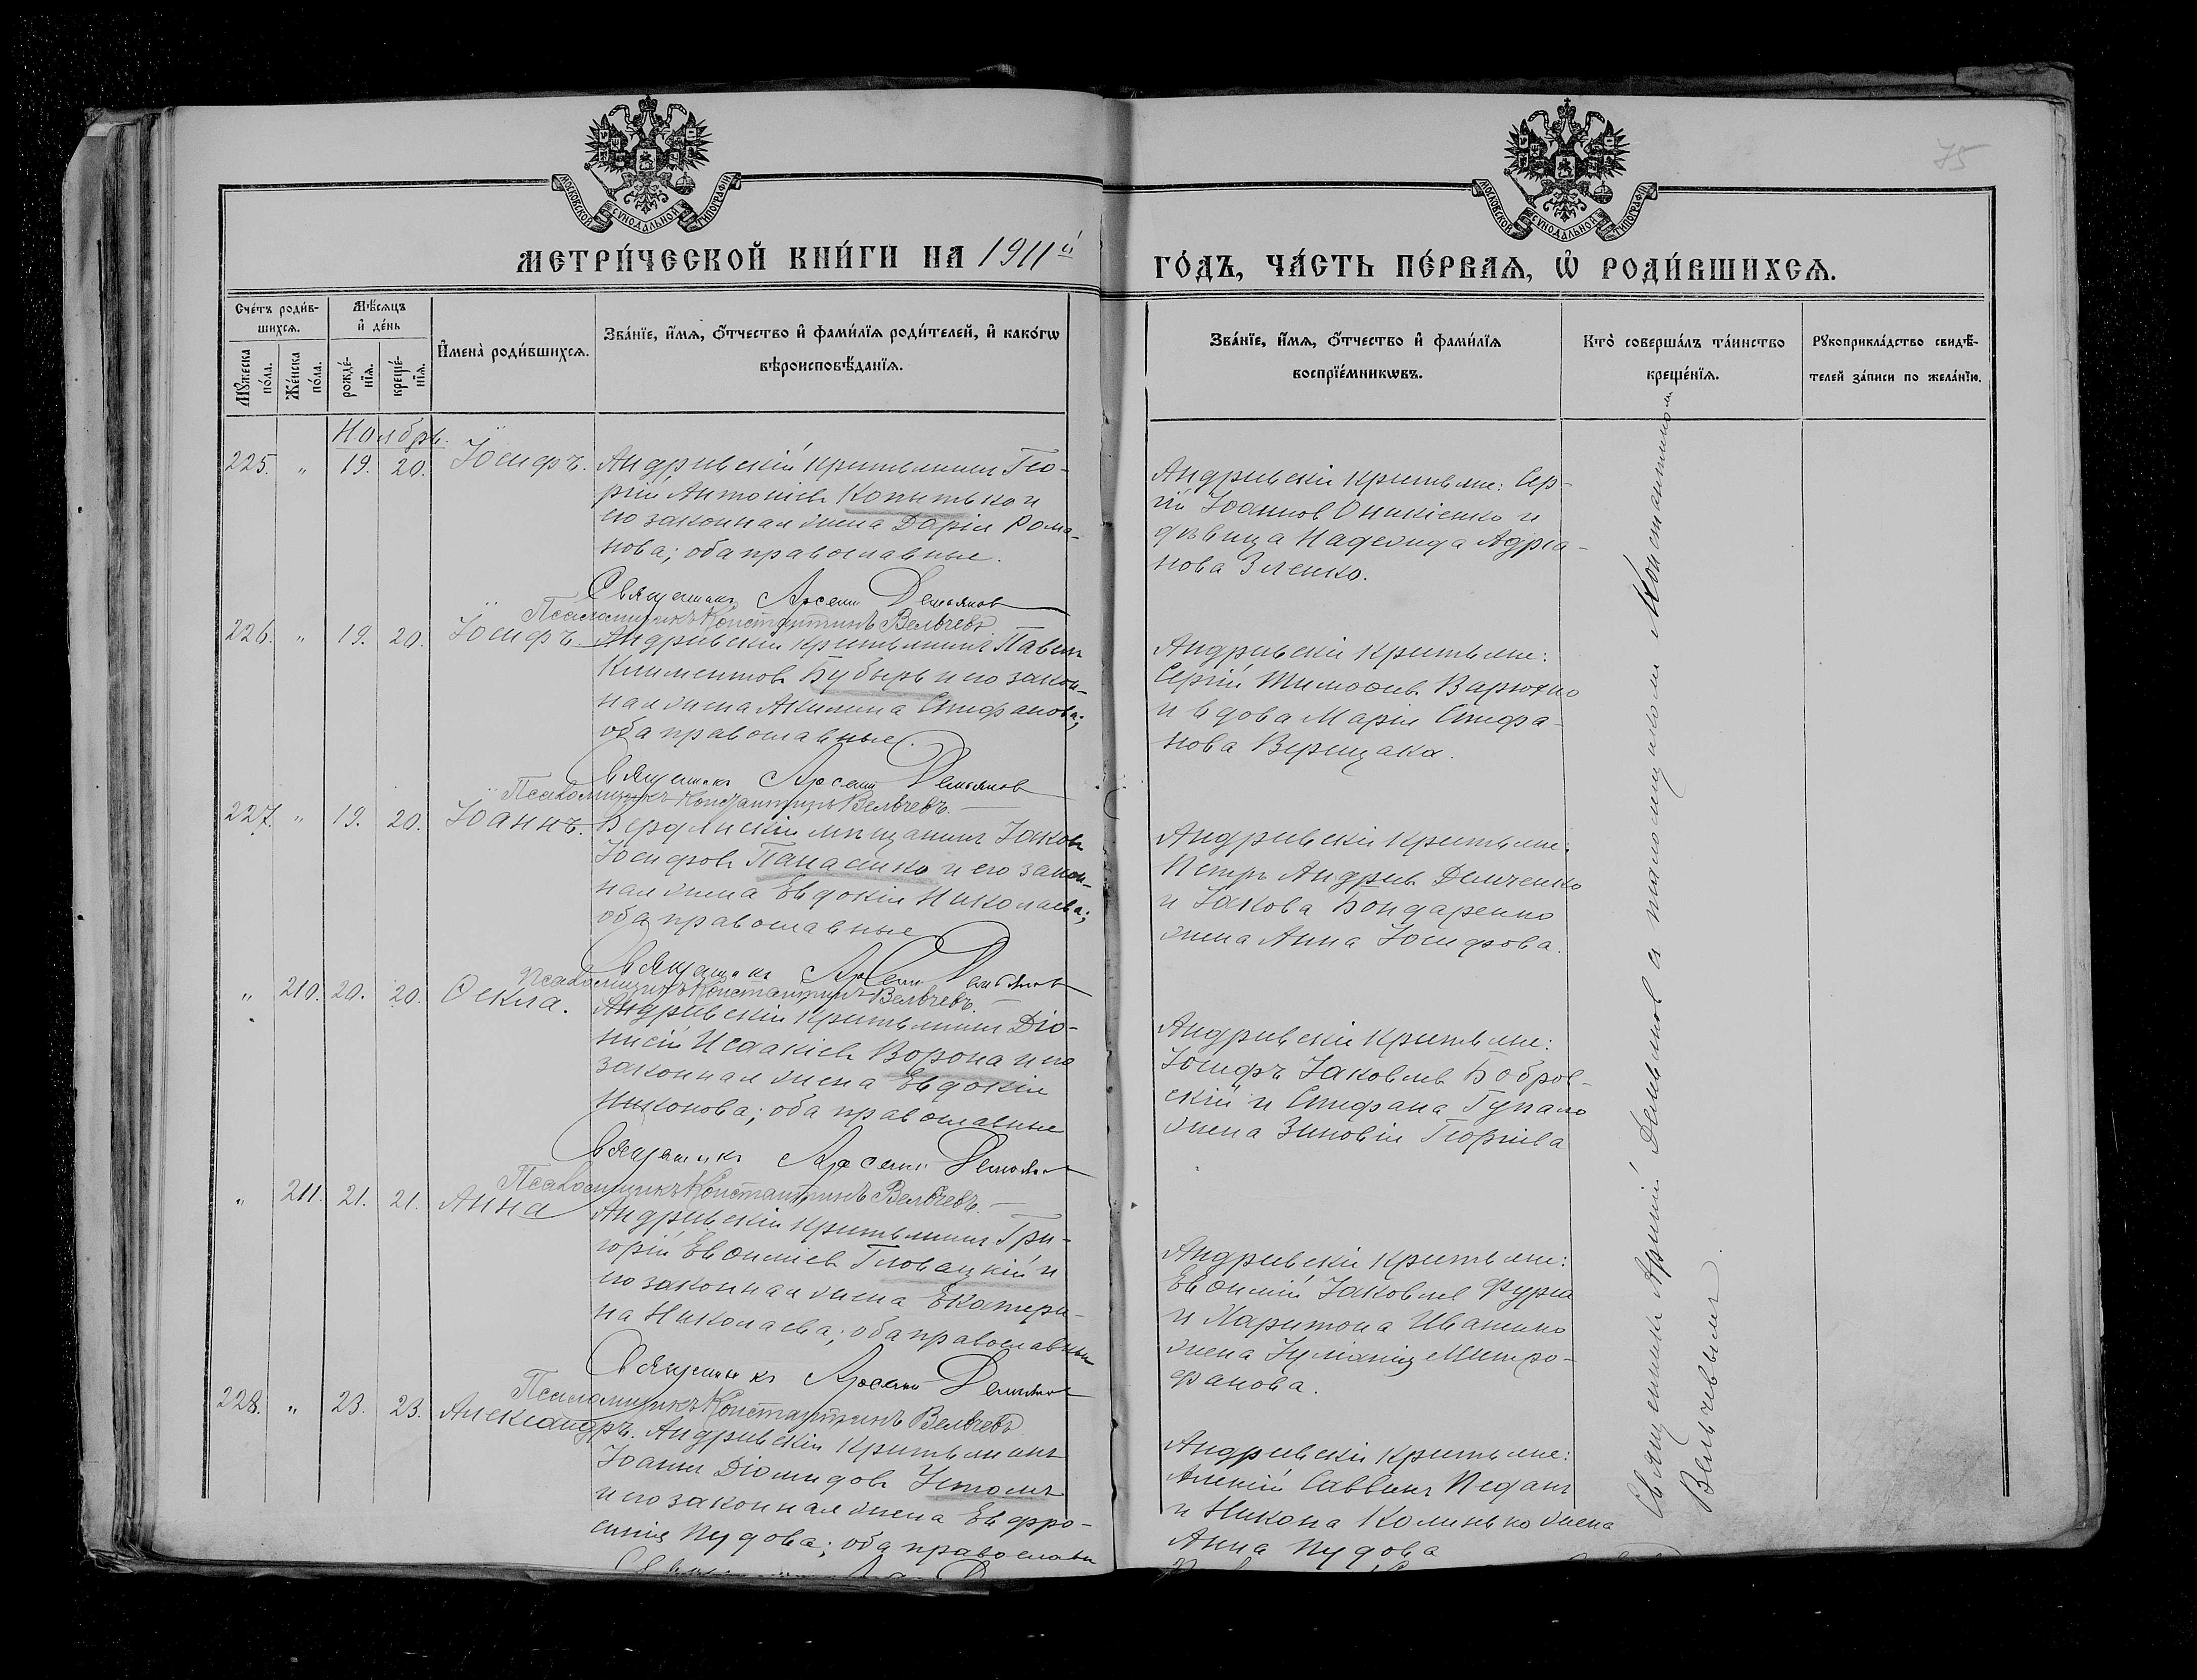 75
МОСКОВСКОЙ СѴНОДАЛЬНОЙ ТИПОГРАФІИ
МОСКОВСКОЙ СѴНОДАЛЬНОЙ ТИПОГРАФІИ
МЕТРИ́ЧЕСКОЙ КНИ́ГИ НА 1911й
ГО́ДЪ, ЧА́СТЬ ПЕ́РВАѦ, Ѽ РОДИ́ВШИХСѦ.
Сче́тъ роди́в-
шихсѧ.
Мѣ́сѧцъ
и҆ де́нь
Мꙋ́жеска
по́ла.
Же́нска
по́ла.
рожде́-
нїѧ.
креще́-
нїѧ.
И҆мена̀ роди́вшихсѧ.
Зва́нїе, и҆́мѧ, ѻ҆́тчество и҆ фами́лїѧ роди́телей, и҆ како́гѡ
вѣроисповѣ́данїѧ.
Зва́нїе, и҆́мѧ, ѻ҆́тчество и҆ фами́лїѧ
воспрїе́мникѡвъ.
Кто̀ соверша́лъ та́инство
креще́нїѧ.
Рꙋкоприкла́дство свидѣ́-
телей за́писи по жела́нїю.
Ноябрь.
225. " 19. 20. Іосифъ.
Андреевскій крестьянинъ Гео-
ргій Антоніевъ Копитько и
его законная жена Дарія Рома-
нова; оба православные.
Священникъ Арсеній Демьянов
Псаломщикъ Константинъ Вельчевъ
Андреевскіе крестьяне: Сер-
гій Іоаннов Оникіенко и
дѣвица Надежда Адріа-
нова Зленко.
226. " 19. 20. Іосифъ
Андреевскій крестьянинъ Павелъ
Климентовъ Бубырь и его закон-
ная жена Акилина Стефанова;
оба православные.
Священникъ Арсеній Демьянов
Псаломщикъ Константинъ Вельчевъ.
Андреевскіе крестьяне:
Сергій Тимоѳеев
и вдова Марія Стефа-
нова Верещака.
227. " 19. 20. Іоаннъ.
Бердянскій мѣщанинъ Іаковъ
Іосифовъ Панасенко и его закон-
ная жена Евдокія Николаева;
оба православные
Священникъ Арсеній Демьянов
Псаломщикъ Константинъ Вельчевъ.
Андреевскіе крестьяне:
Петръ Андреев Демченко
и Іакова Бондаренко
жена Анна Іосифова.
" 210. 20. 20. Ѳекла.
Андреевскій крестьянинъ Діо-
нисій Исаакіевъ Ворона и его
законная жена Евдокія
Никонова; оба православные
Священникъ Арсеній Демьянов
Псаломщикъ Константинъ Вельчевъ.
Андреевскіе крестьяне:
Іосифъ Іаковлев Бобров-
скій и Стефана Гупало
жена Зиновія Георгіева
" 211. 21. 21. Анна
Андреевскій крестьянинъ Гри-
горій Евѳиміевъ Гловацкій и
его законная жена Екатери-
на Николаева; оба православные
Священникъ Арсеній Демьянов
Псаломщикъ Константинъ Вельчевъ
Андреевскіе крестьяне:
Евѳимій Іаковлев
и Харитона Иваненко
жена Іуліанія Митро-
фанова.
228. " 23. 23. Александръ.
Андреевскій крестьянинъ
Іоаннъ Діомидовъ
и его законная жена Евфро-
синія Пудова; оба православн
Андреевскіе крестьяне:
Алексій Саввинъ Педанъ
и Никона Колинько жена
Анна Пудова
Священникъ Арсеній Демьяновъ с псаломщикомъ Константиномъ
Вельчевымъ.